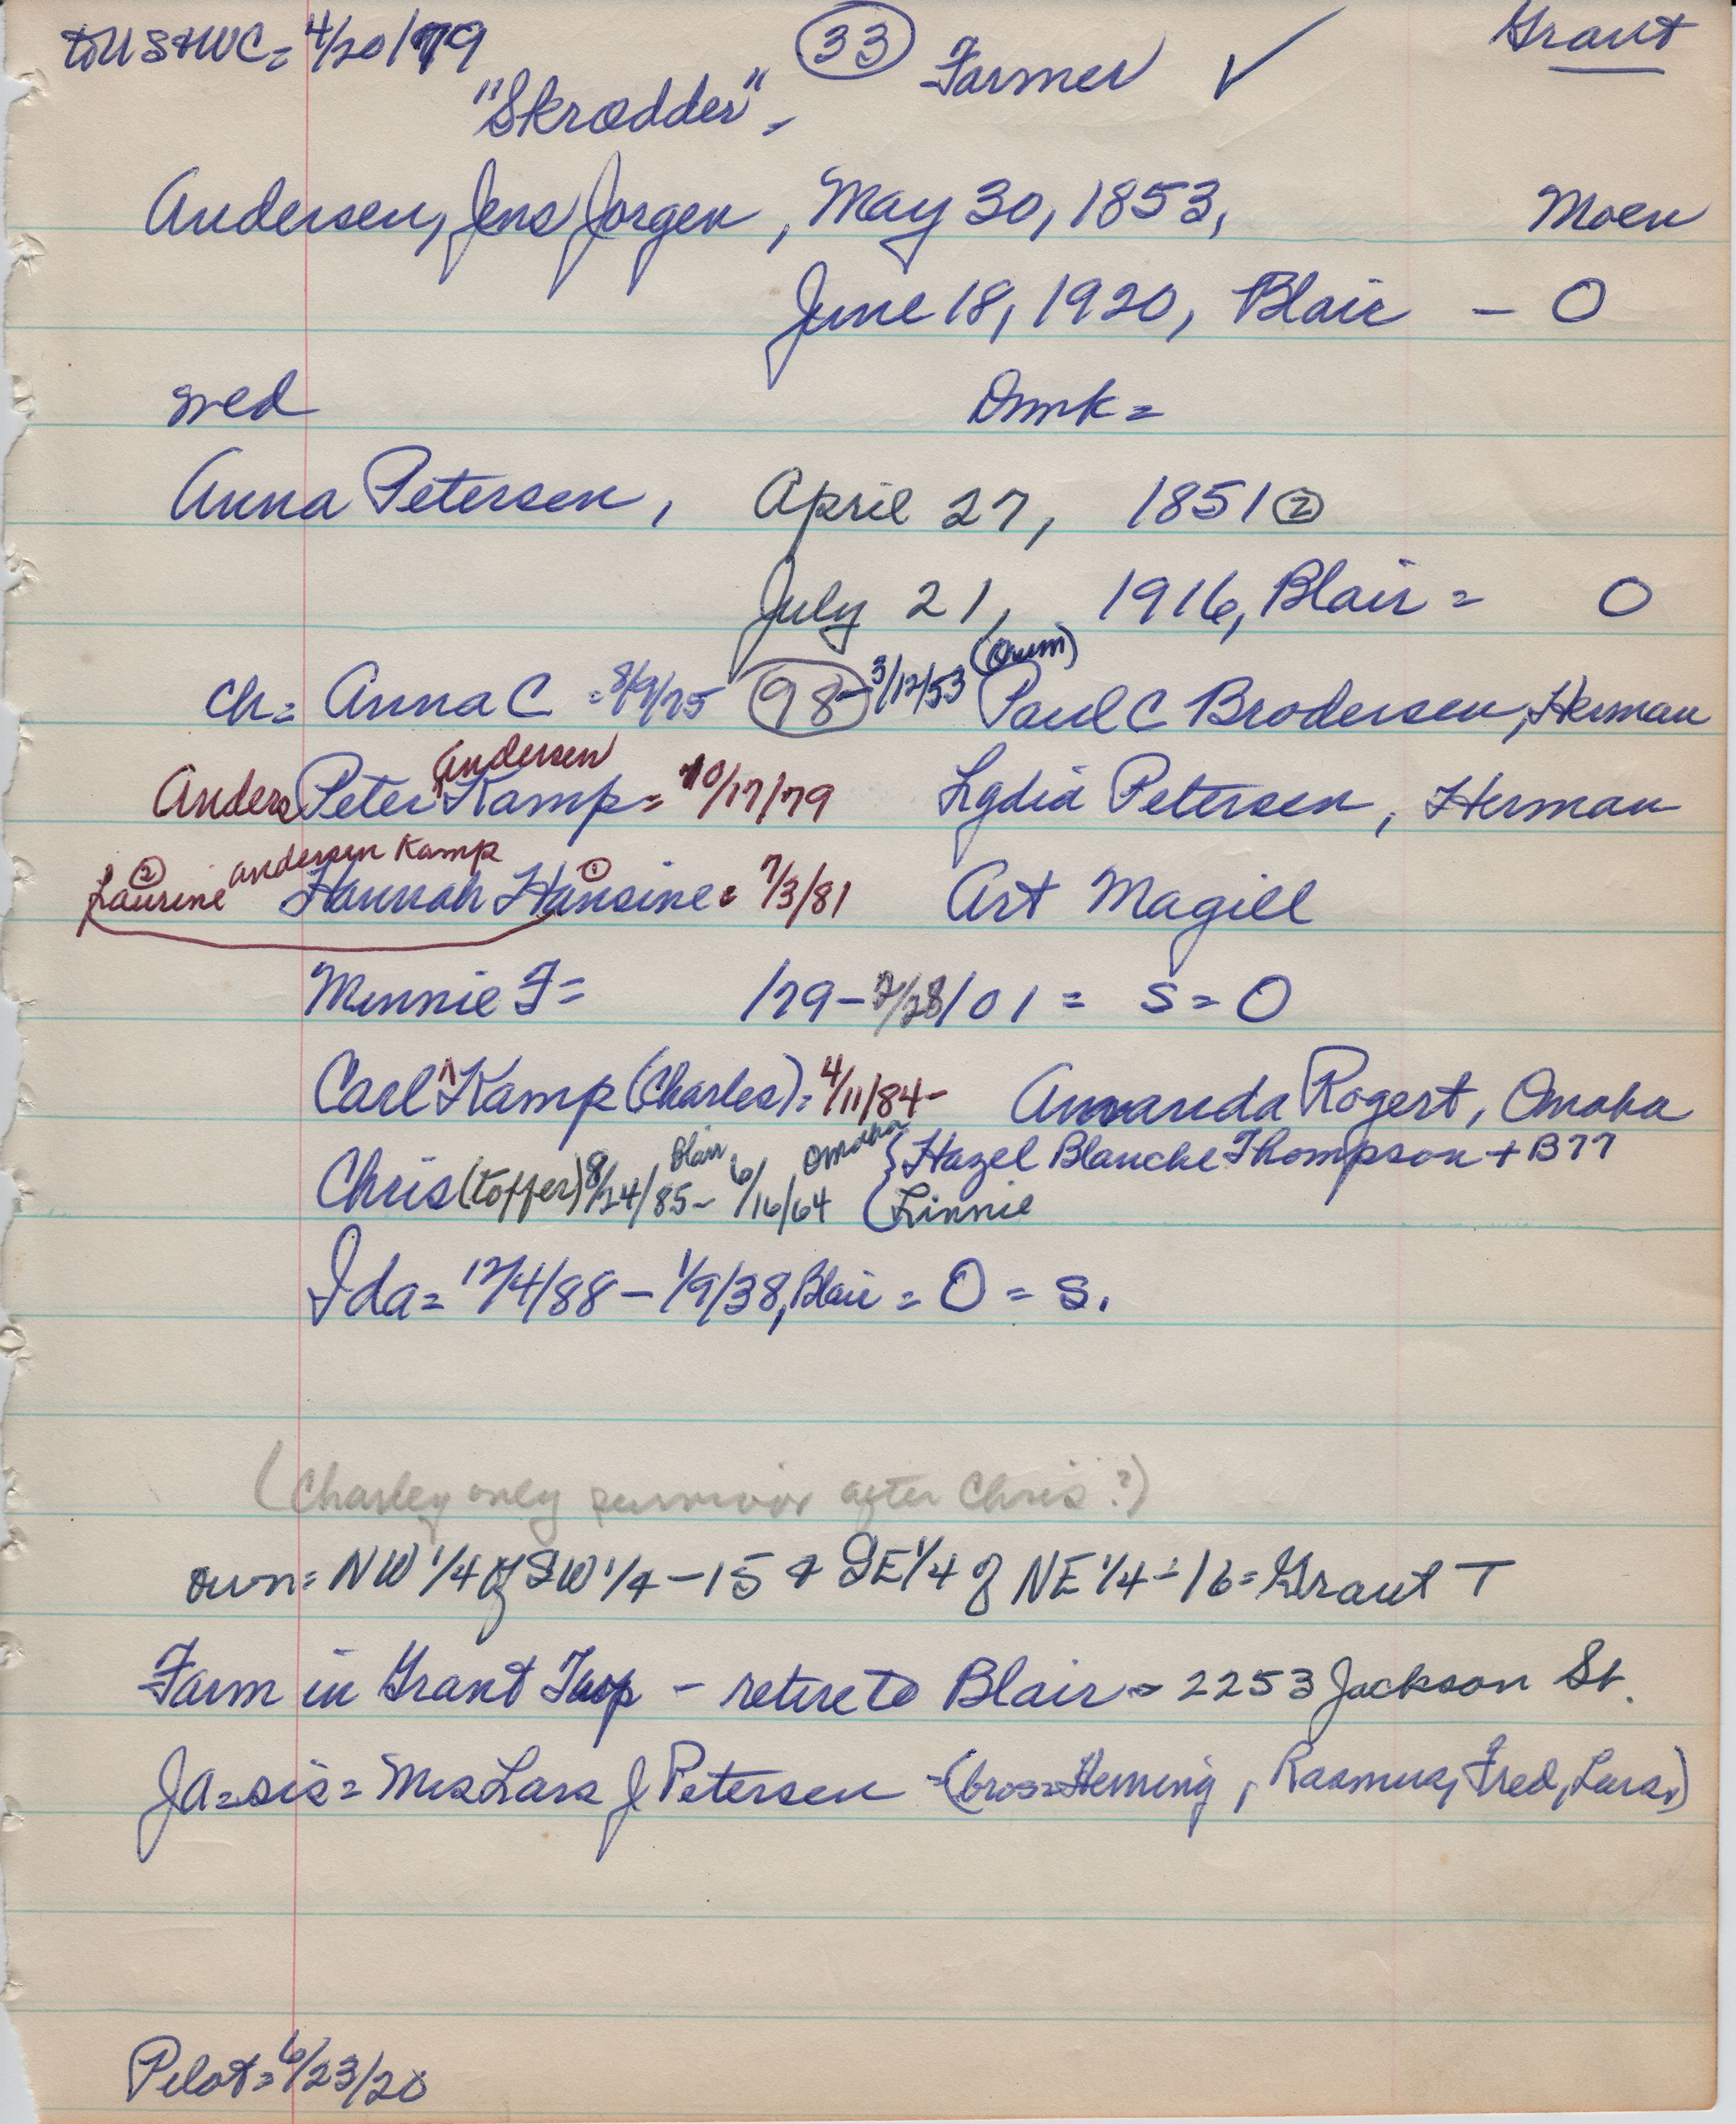 to US & WC = 4/20/79 (33) Farmer ✓ Grant
"Skrædder",
Andersen, Jens Jorgen, May 30, 1853, Moen
June 18, 1920, Blair - O
wed Dmk =
Anna Petersen, April 27, 1851 (2)
July 21, 1916, Blair = O
(Orum)
ch = Anna C = 8/9/75 (98) - 3/12/53 Paul C Brodersen, Herman
Andersen
Anders Peter ^ Kamp = 10/17/79 Lydia Petersen, Herman
(2) andersen Kamp (1)
Laurine Hannah Hansine = 7/3/81 Art Magill
Minnie F = /79 - 7/28/01 = S = O
Carl ^ Kamp (Charles) = 4/11/84 - Amanda Rogert, Omaha
Blair, Omaha
Chris (toffer) 8/24/85 - 6/16/64 { Hazel Blanche Thompson + B77
Linnie
Ida = 12/4/88 - 1/9/38, Blair = O = S.
(Charley only survivor after Chris?)
own = NW 1/4 of SW 1/4 - 15 & SE 1/4 of NE 1/4 - 16 = Grant T
Farm in Grant Twp - retire to Blair = 2253 Jackson St.
JA = sis = Mrs Lars J Petersen = (bros = Heming, Rasmus, Fred, Lars,)
Pilot = 6/23/20